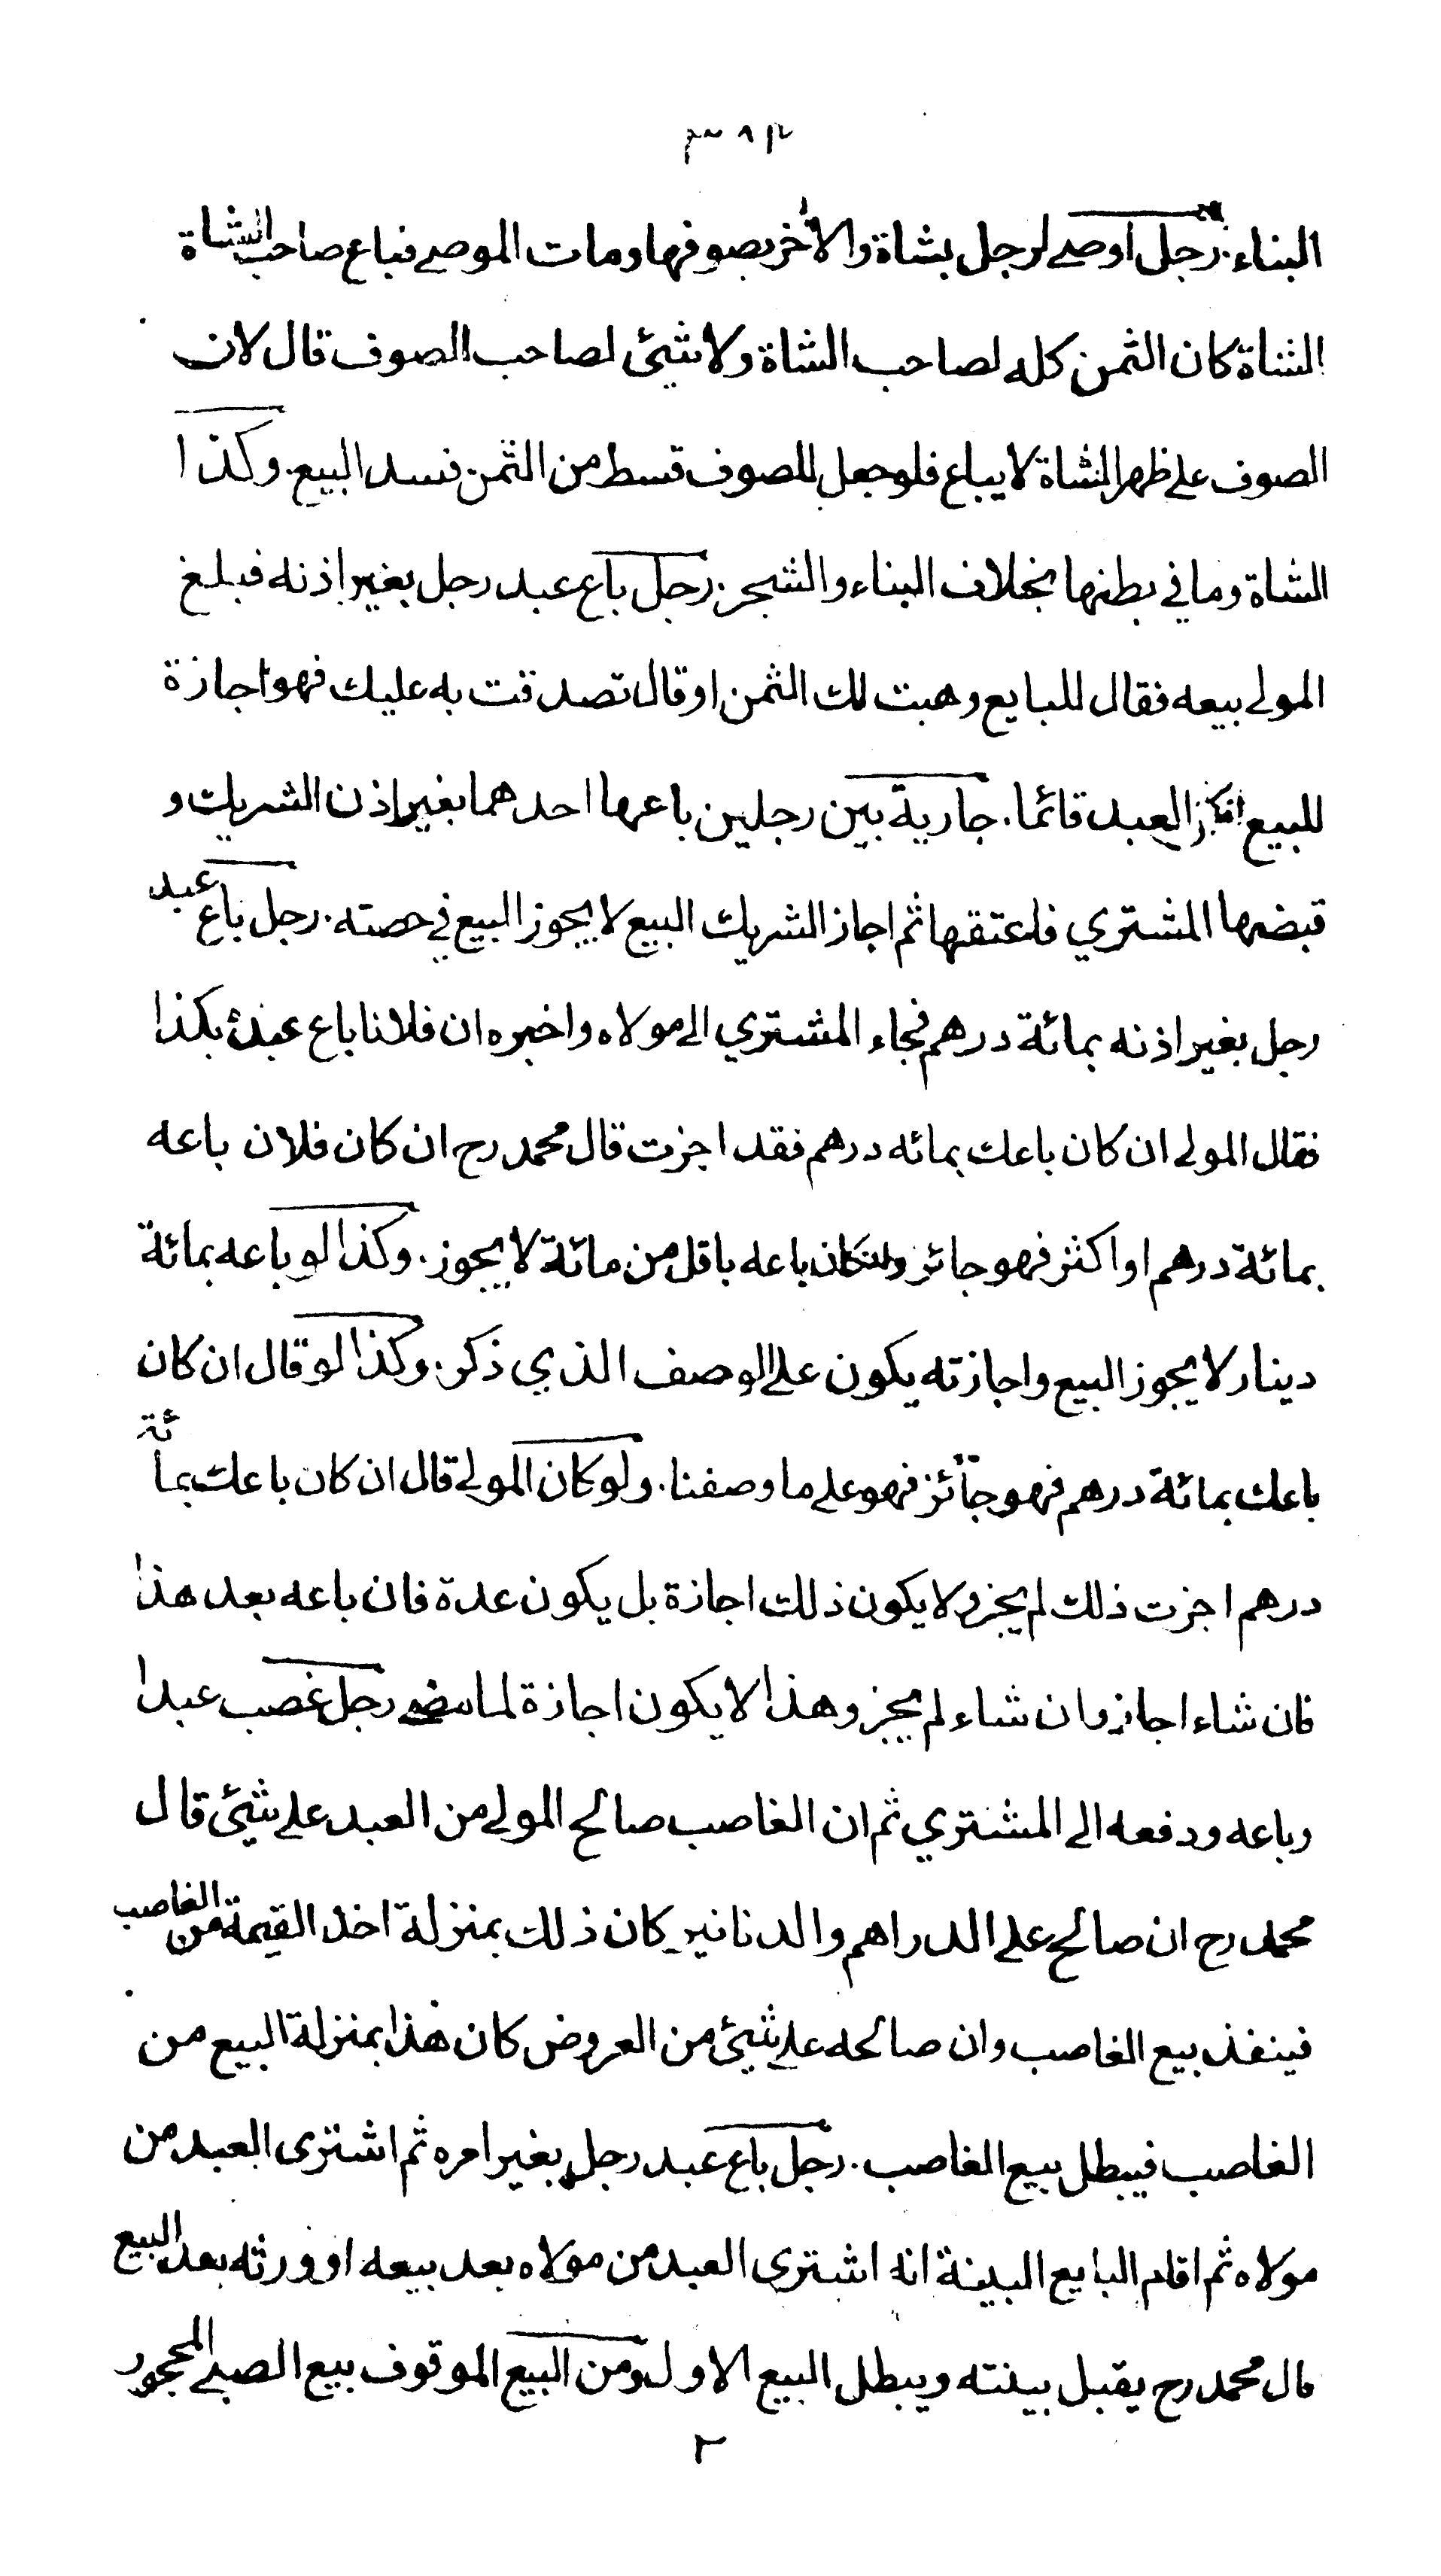 البناء. رجل اوصى لرجل بشاة ولآخر بصوفها ومات الموصي فباع صاحب الشاة
الشاة كان الثمن كله لصاحب الشاة ولا شيئ لصاحب الصوف قال لان
الصوف على ظهر الشاة لا يباع فلو جعل للصوف قسط من الثمن فسد البيع. وكذا
الشاة وما في بطنها بخلاف البناء والشجر. رجل باع عبد رجل بغير اذنه فبلغ
المولى بيعه فقال للبايع وهبت لك الثمن او قال تصدقت به عليك فهو اجازة
للبيع العبد قائما. جارية بين رجلين باعها احدهما بغير اذن الشريك و
قبضها المشتري فاعتقها ثم اجاز الشريك البيع لا يجوز البيع في حصته. رجل باع عبد
رجل بغير اذنه بمائة درهم فجاء المشتري الى مولاه واخبره ان فلانا باع عبدك بكذا
فقال المولى ان كان باعك بمائه درهم فقد اجزت قال محمد رح ان كان فلان باعه
بمائة درهم او اكثر فهو جائز وان كان باعه باقل من مائة لا يجوز. وكذا لو باعه بمائة
دينار لا يجوز البيع واجازته يكون على الوصف الذي ذكر. وكذا لو قال ان كان
باعك بمائة درهم فهو جائز فهو على ما وصفنا. ولو كان المولى قال ان كان باعك بمائة
درهم اجزت ذلك لم يجز ولا يكون ذلك اجازة بل يكون عدة فان باعه بعد هذا
فان شاء اجاز وان شاء لم يجز وهذا لا يكون اجازة لما مضى رجل غصب عبدا
وباعه ودفعه الى المشتري ثم ان الغاصب صالح المولى من العبد على شيئ قال
محمد رح ان صالح على الدراهم والدنانير كان ذلك بمنزلة اخذ القيمة من الغاصب
فينفذ بيع الغاصب وان صالحه على شيئ من العروض كان هذا بمنزلة البيع من
الغاصب فيبطل بيع الغاصب. رجل باع عبد رجل بغير امره ثم اشترى العبد من
مولاه ثم اقام البايع البينة انه اشترى العبد من مولاه بعد بيعه او ورثه بعد البيع
قال محمد رح يقبل بينته ويبطل البيع الاول ومن البيع الموقوف بيع الصبي المحجور
٢